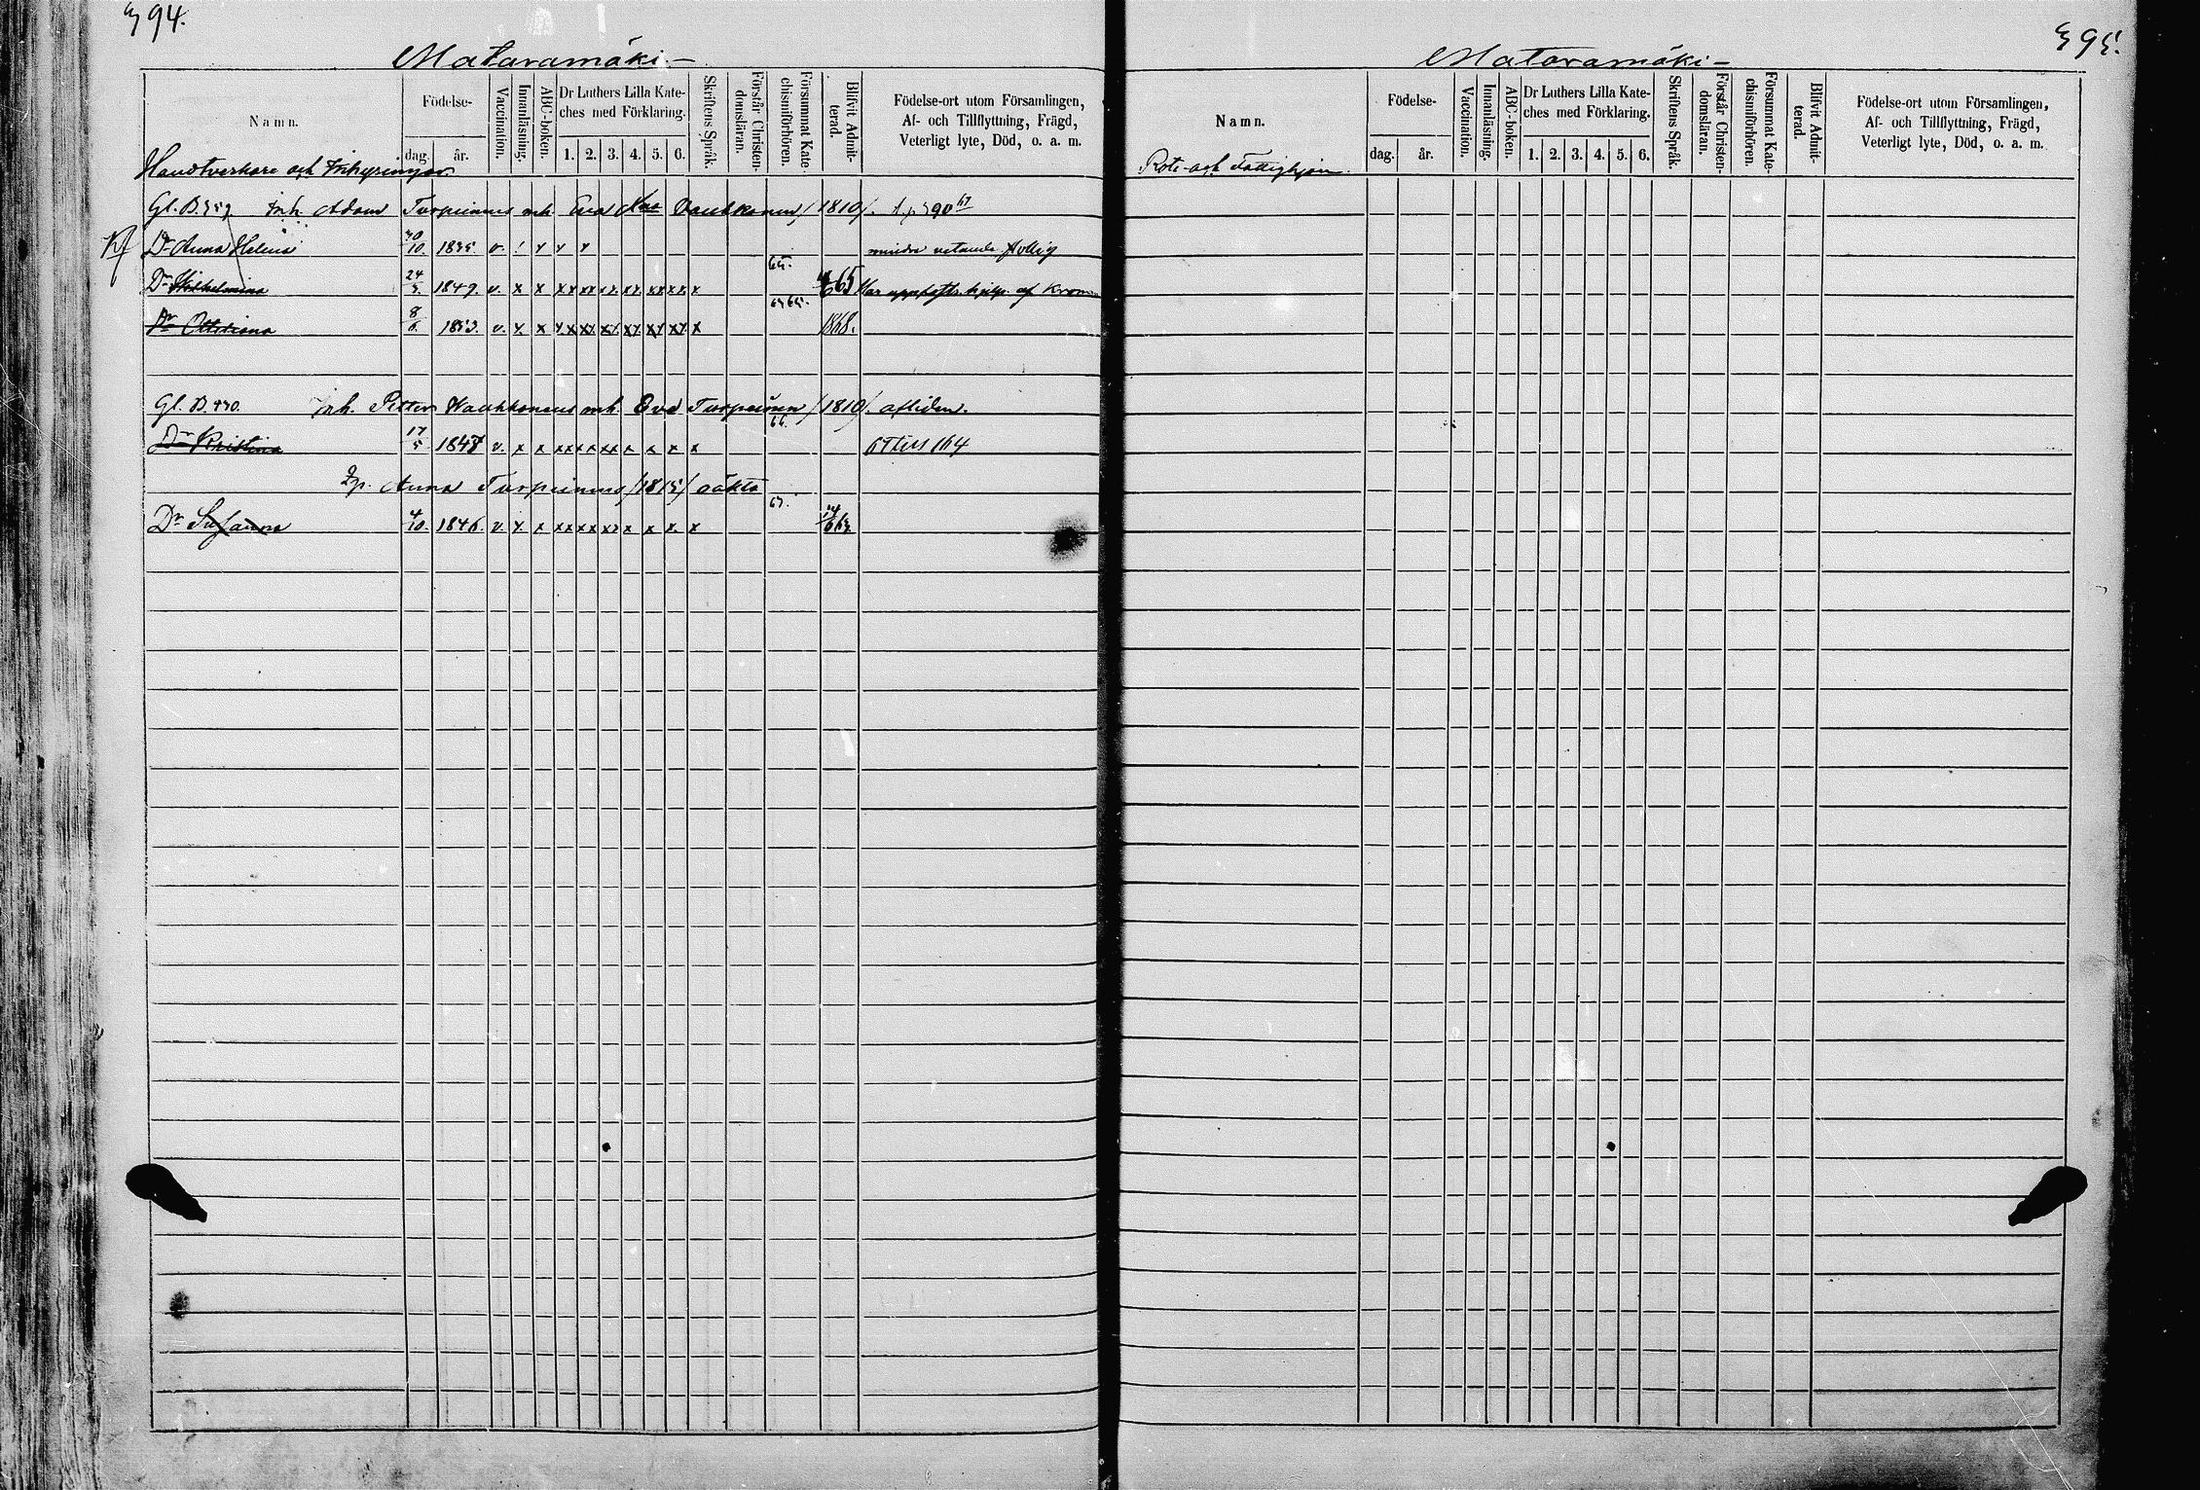 394.
Mataramäki.
Namn.
Födelse-
dag. år.
Vaccination.
Innanläsning.
ABC-boken.
Dr Luthers Lilla Kate-
ches med Förklaring.
1. 2. 3. 4. 5. 6.
Skriftens Språk.
Förstår Christen-
domsläran.
Försummat Kate-
chismiförhören.
Blifvit Admit-
terad.
Födelse-ort utom Församlingen,
Af- och Tillflyttning, Frägd,
Veterligt lyte, Död, o. a. m.
Handtverkare och Inhysingar.
Gl. B. 359 Inh. Adam Turpeinus mh. Eva Vauhkonen /1810/. 390 67
Dr Anna Helena 30/10. 1835. v. mindre vetande
65.
Dr Wilhelmina 24 1849. v. x x xx xx xx xx xx xx x 65 af Kronan
65.
Dr Ottiliana 8/6. 1853. v. x x xx xx xx xx xx xx x 1868.
Gl. B. 430. Inh. Petter Wauhkonens mh. Eva Turpeinen /1810/. afliden.
66.
Dr Kristina 17/5 1847 v. x x xx xx xx x x x x attest 164
Anna Turpeinus /1815/ oäkta
67.
Dr Susanna 4/10. 1846. v. x x xx xx xx x x x x 14/6 63.
395.
Mataramäki
Namn.
Födelse-
dag. år.
Vaccination.
Innanläsning.
ABC-boken.
Dr Luthers Lilla Kate-
ches med Förklaring.
1. 2. 3. 4. 5. 6.
Skriftens Språk.
Förstår Christen-
domsläran.
Försummat Kate-
chismiförhören.
Blifvit Admit-
terad.
Födelse-ort utom Församlingen,
Af- och Tillflyttning, Frägd,
Veterligt lyte, Död, o. a. m.
Rote- och Fattighjon.